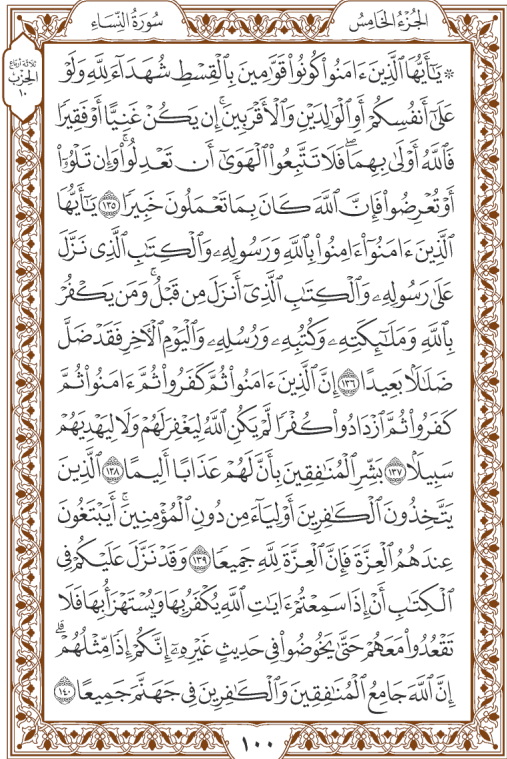 الجُزْءُ الخَامِسُ
سُورَةُ النِّسَاءِ
ثلاثة أرباع
الحِزْب
١٠
۞ يَـٰٓأَيُّهَا ٱلَّذِينَ ءَامَنُواْ كُونُواْ قَوَّٰمِينَ بِٱلۡقِسۡطِ شُهَدَآءَ لِلَّهِ وَلَوۡ
عَلَىٰٓ أَنفُسِكُمۡ أَوِ ٱلۡوَٰلِدَيۡنِ وَٱلۡأَقۡرَبِينَۚ إِن يَكُنۡ غَنِيًّا أَوۡ فَقِيرٗا
فَٱللَّهُ أَوۡلَىٰ بِهِمَاۖ فَلَا تَتَّبِعُواْ ٱلۡهَوَىٰٓ أَن تَعۡدِلُواْۚ وَإِن تَلۡوُۥٓاْ
أَوۡ تُعۡرِضُواْ فَإِنَّ ٱللَّهَ كَانَ بِمَا تَعۡمَلُونَ خَبِيرٗا ١٣٥ يَـٰٓأَيُّهَا
ٱلَّذِينَ ءَامَنُوٓاْ ءَامِنُواْ بِٱللَّهِ وَرَسُولِهِۦ وَٱلۡكِتَٰبِ ٱلَّذِي نَزَّلَ
عَلَىٰ رَسُولِهِۦ وَٱلۡكِتَٰبِ ٱلَّذِيٓ أَنزَلَ مِن قَبۡلُۚ وَمَن يَكۡفُرۡ
بِٱللَّهِ وَمَلَـٰٓئِكَتِهِۦ وَكُتُبِهِۦ وَرُسُلِهِۦ وَٱلۡيَوۡمِ ٱلۡأٓخِرِ فَقَدۡ ضَلَّ
ضَلَٰلَۢا بَعِيدًا ١٣٦ إِنَّ ٱلَّذِينَ ءَامَنُواْ ثُمَّ كَفَرُواْ ثُمَّ ءَامَنُواْ ثُمَّ
كَفَرُواْ ثُمَّ ٱزۡدَادُواْ كُفۡرٗا لَّمۡ يَكُنِ ٱللَّهُ لِيَغۡفِرَ لَهُمۡ وَلَا لِيَهۡدِيَهُمۡ
سَبِيلَۢا ١٣٧ بَشِّرِ ٱلۡمُنَٰفِقِينَ بِأَنَّ لَهُمۡ عَذَابًا أَلِيمًا ١٣٨ ٱلَّذِينَ
يَتَّخِذُونَ ٱلۡكَٰفِرِينَ أَوۡلِيَآءَ مِن دُونِ ٱلۡمُؤۡمِنِينَۚ أَيَبۡتَغُونَ
عِندَهُمُ ٱلۡعِزَّةَ فَإِنَّ ٱلۡعِزَّةَ لِلَّهِ جَمِيعٗا ١٣٩ وَقَدۡ نَزَّلَ عَلَيۡكُمۡ فِي
ٱلۡكِتَٰبِ أَنۡ إِذَا سَمِعۡتُمۡ ءَايَٰتِ ٱللَّهِ يُكۡفَرُ بِهَا وَيُسۡتَهۡزَأُ بِهَا فَلَا
تَقۡعُدُواْ مَعَهُمۡ حَتَّىٰ يَخُوضُواْ فِي حَدِيثٍ غَيۡرِهِۦٓ إِنَّكُمۡ إِذٗا مِّثۡلُهُمۡۗ
إِنَّ ٱللَّهَ جَامِعُ ٱلۡمُنَٰفِقِينَ وَٱلۡكَٰفِرِينَ فِي جَهَنَّمَ جَمِيعًا ١٤٠
١٠٠